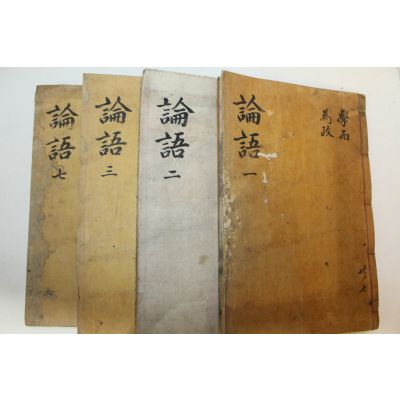 論語 一
學而
爲政
論語 二
論語 三
論語 七